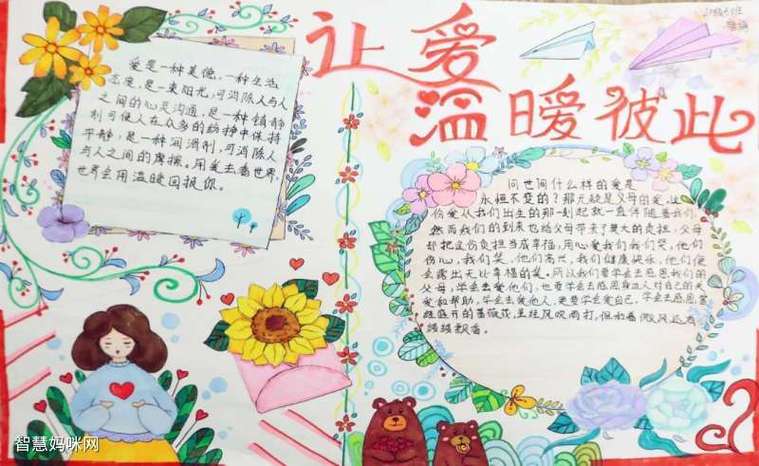 让爱
温暖彼此
爱是一种美德,一种生活
态度,是一束阳光,可消除人与人
之间的心灵沟通,是一种镇静
剂可使人在众多的纷挣中保持
平静,是一种润滑剂,可消除人
与人之间的摩擦。用爱去看世界,
世界会用温暖回报你。
问世间什么样的爱是
永恒不变的?那无疑是父母的爱,这
份爱从我们出生的那一刻起就一直伴随着我们,
然而我们的到来也给父母带来了莫大的负担,父母
却把这份负担当成幸福,用心爱我们我们哭,他们
伤心,我们笑,他们高兴,我们健康快乐,他们便
会露出无比幸福的笑。所以我们要学会去感恩我们的
父母,学会去爱他们,也要学会去感恩身边人对自己的关
爱和帮助,学会去爱他人,更要学会爱自己,学会去感恩
庭盛开的蔷薇花,里经风吹雨打,但和着微风还为
缕缕飘香。
智慧妈咪网